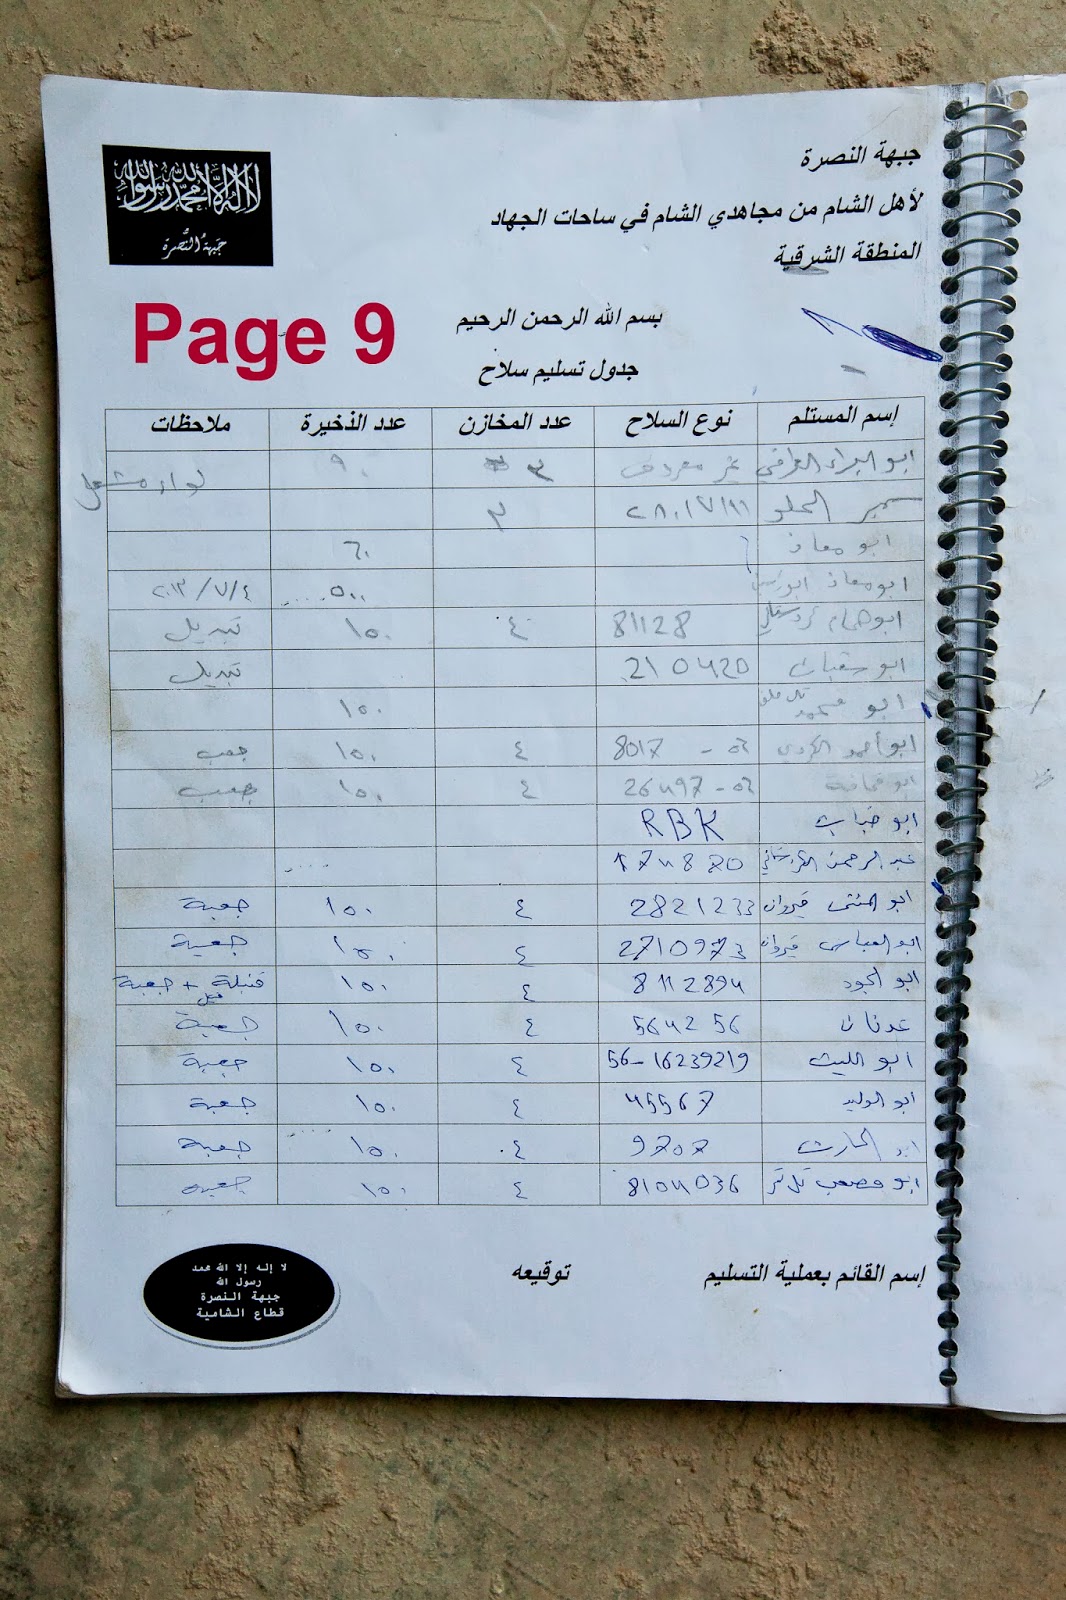 جبهة النصرة
لأهل الشام من مجاهدي الشام في ساحات الجهاد
المنطقة الشرقية
لا إله إلا الله محمد رسول الله
جبهة النصرة
Page 9
بسم الله الرحمن الرحيم
جدول تسليم سلاح
إسم المستلم نوع السلاح عدد المخازن عدد الذخيرة ملاحظات
ابو البراء العراقي غير معروف ٣ ٩٠
سمير الحلو ٣
ابو معاذ ٦٠
ابو معاذ ٥٠٠ ٢٠١٣/٧/٤
ابو همام 81128 ٤ ١٥٠ تبديل
ابو تبديل
ابو محمد ١٥٠
ابو أحمد الكردي ٤ ١٥٠ جعب
ابو ٤ ١٥٠ جعب
ابو خباب RBK
عبد الرحمن
ابو المثنى قيروان 2821233 ٤ ١٥٠ جعبة
ابو العباس قيروان 2710973 ٤ ١٥٠ جعبة
ابو الجود ٤ ١٥٠ قنبلة + جعبة
عدنان ٤ ١٥٠ جعبة
ابو الليث 56-16239219 ٤ ١٥٠ جعبة
ابو الوليد ٤ ١٥٠ جعبة
ابو الحارث ٤ ١٥٠ جعبة
ابو مصعب ٤ ١٥٠ جعبة
إسم القائم بعملية التسليم توقيعه
لا إله إلا الله محمد
رسول الله
جبهة النصرة
قطاع الشامية